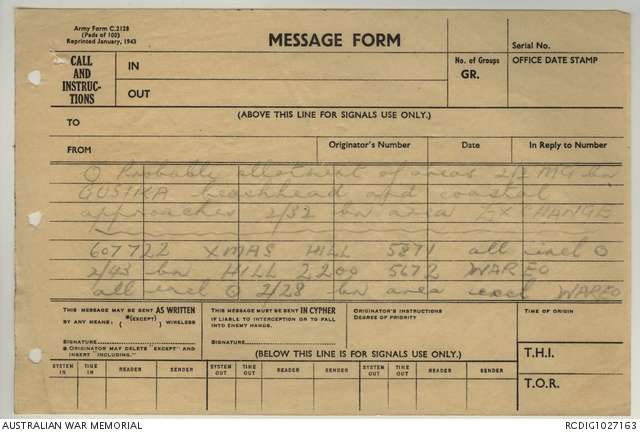 Army Form C.2128
(Pads of 100)
Reprinted January, 1943
MESSAGE FORM
Serial No.
CALL AND INSTRUC-TIONS
IN
OUT
No. of Groups
GR.
OFFICE DATE STAMP
(ABOVE THIS LINE FOR SIGNALS USE ONLY.)
TO
FROM
Originator's Number
Date
In Reply to Number
O Probably allotment of areas 2/2 MG bn
GUSIKA beachhead and coastal
approaches 2/32 bn area
607722 XMAS HILL 5871 all incl O
2/43 bn HILL 2200 5672 WAREO
all incl O 2/28 bn area excl WAREO
THIS MESSAGE MAY BE SENT AS WRITTEN
BY ANY MEANS. (*(EXCEPT) ) WIRELESS
SIGNATURE
ORIGINATOR MAY DELETE "EXCEPT" AND
INSERT "INCLUDING."
THIS MESSAGE MUST BE SENT IN CYPHER
IF LIABLE TO INTERCEPTION OR TO FALL
INTO ENEMY HANDS.
SIGNATURE
ORIGINATOR'S INSTRUCTIONS
DEGREE OF PRIORITY
TIME OF ORIGIN
(BELOW THIS LINE IS FOR SIGNALS USE ONLY.)
T.H.I.
T.O.R.
SYSTEM IN
TIME IN
READER
SENDER
SYSTEM OUT
TIME OUT
READER
SENDER
SYSTEM OUT
TIME OUT
READER
SENDER
AUSTRALIAN WAR MEMORIAL
RCDIG1027163